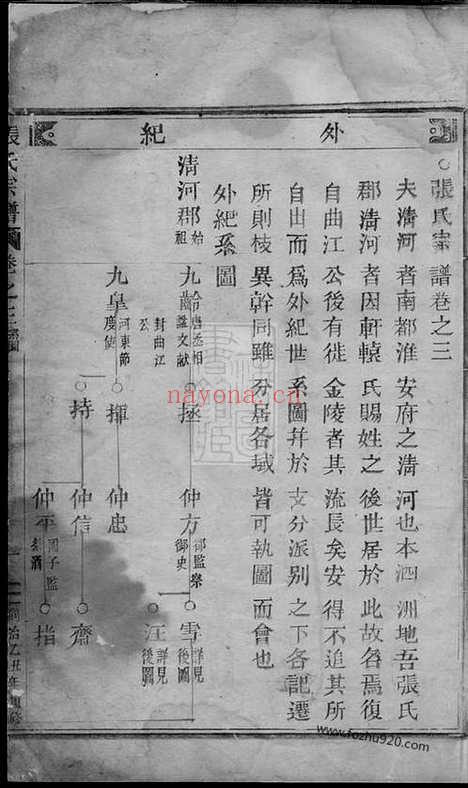 外紀
○張氏宗譜卷之三
夫清河者南都淮安府之清河也本泗洲地吾張氏
郡清河者因軒轅氏賜姓之後世居於此故名焉復
自曲江公後有徙金陵者其流長矣安得不追其所
自由而為外紀世系圖并於支分派別之下各記遷
所則枝異幹同雖分居各域皆可執圖而會也
外紀系圖
清河郡始祖
九齡唐丞相諡文献封曲江公
拯
仲方御史
雪詳見後圖
汪詳見後圖
九皐河東節度使
揮
仲忠
持
仲信
齋
仲平國子監祭酒
指
張氏宗譜 卷之三
nayona.cn
www.fozhu920.com